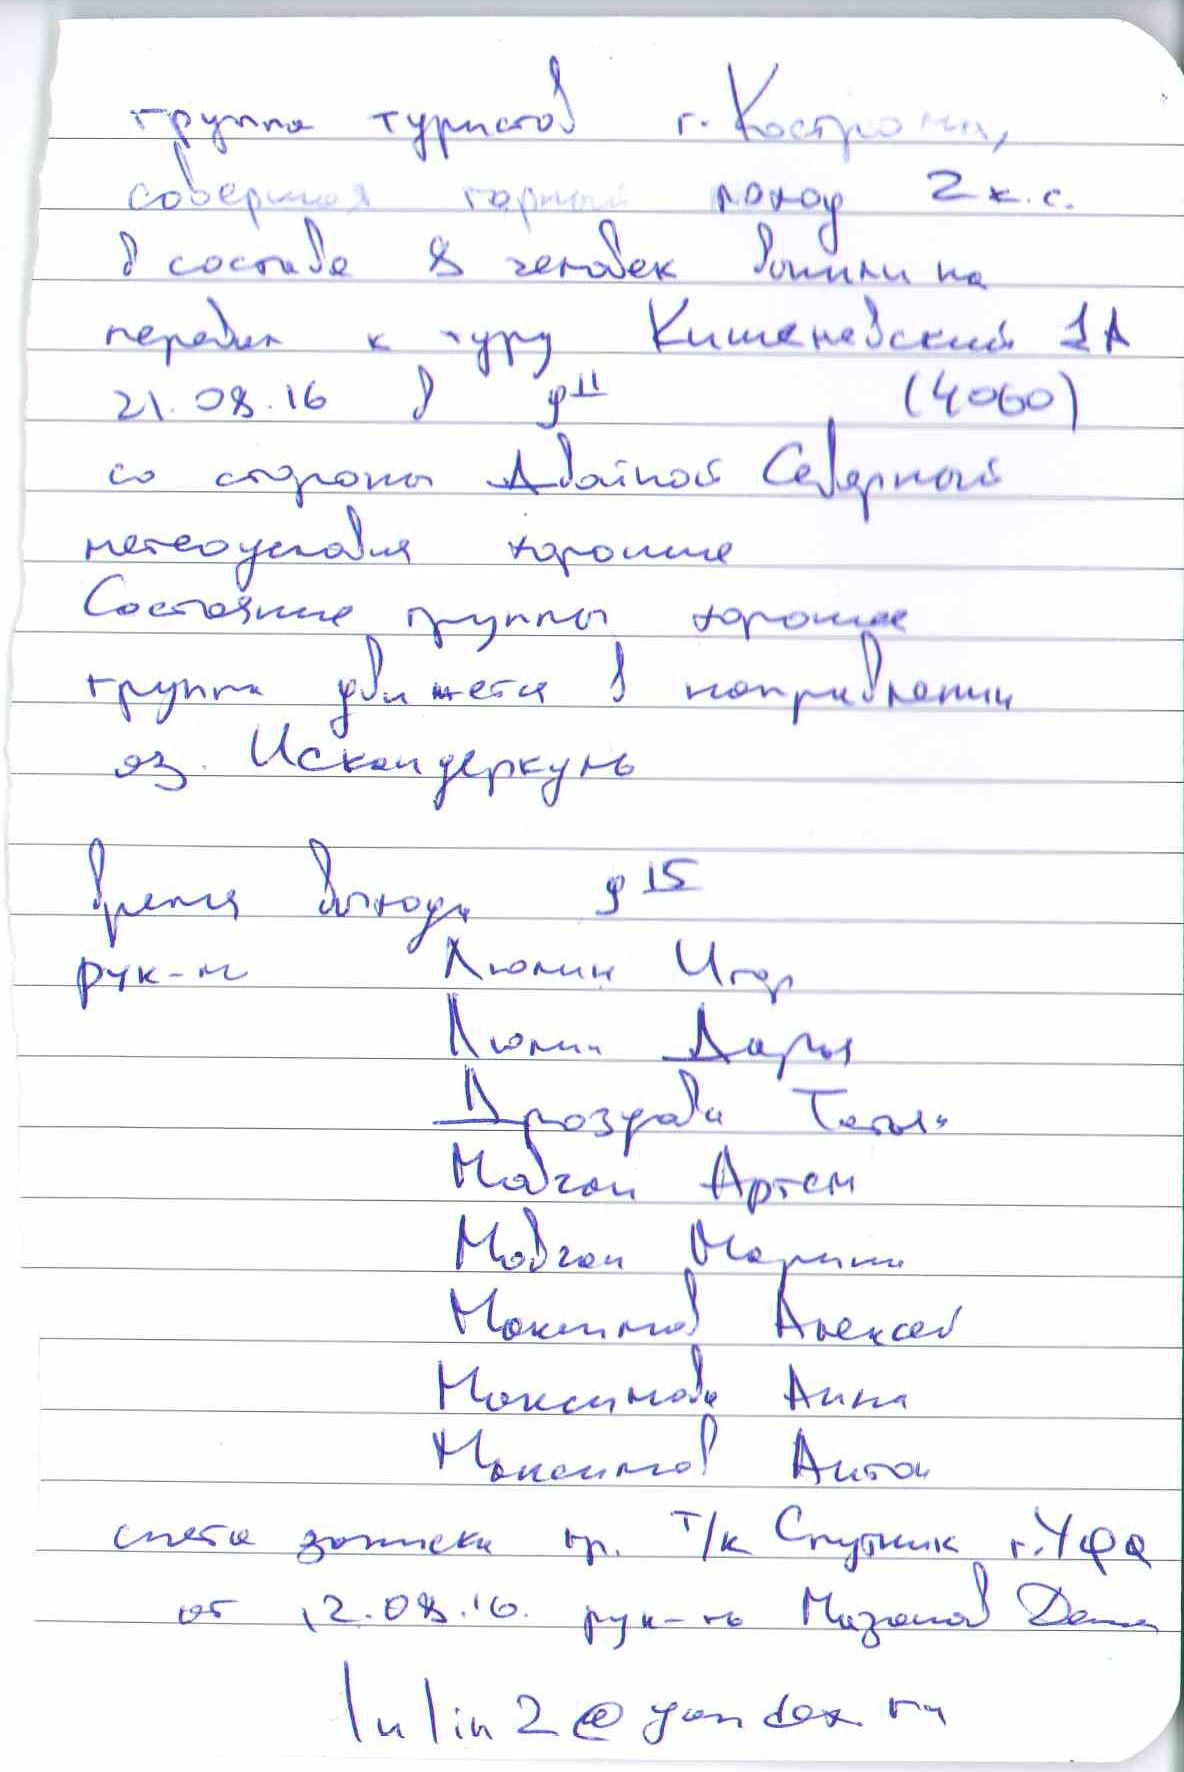 группа туристов г. Костромы,
совершая горный поход 2 к.с.
в составе 8 человек вышли на
перевал к туру Кишеневский 1А
21.08.16 в 9 11 (4060)
со стороны Двойной Северный
метеоусловия хорошие
Состояние группы хорошее
группа движется в направлении
оз. Искандеркуль
время выхода 9 15
рук-ль Люлин Игорь
Люлин Дарья
Дроздова Татьяна
Мовчан Артем
Мовчан Марина
Максимов Алексей
Максимова Анна
Максимов Антон
снята записка гр. Т/к Спутник г. Уфа
от 12.08.16. рук-ль Мазанов Денис
lulin2@yandex.ru